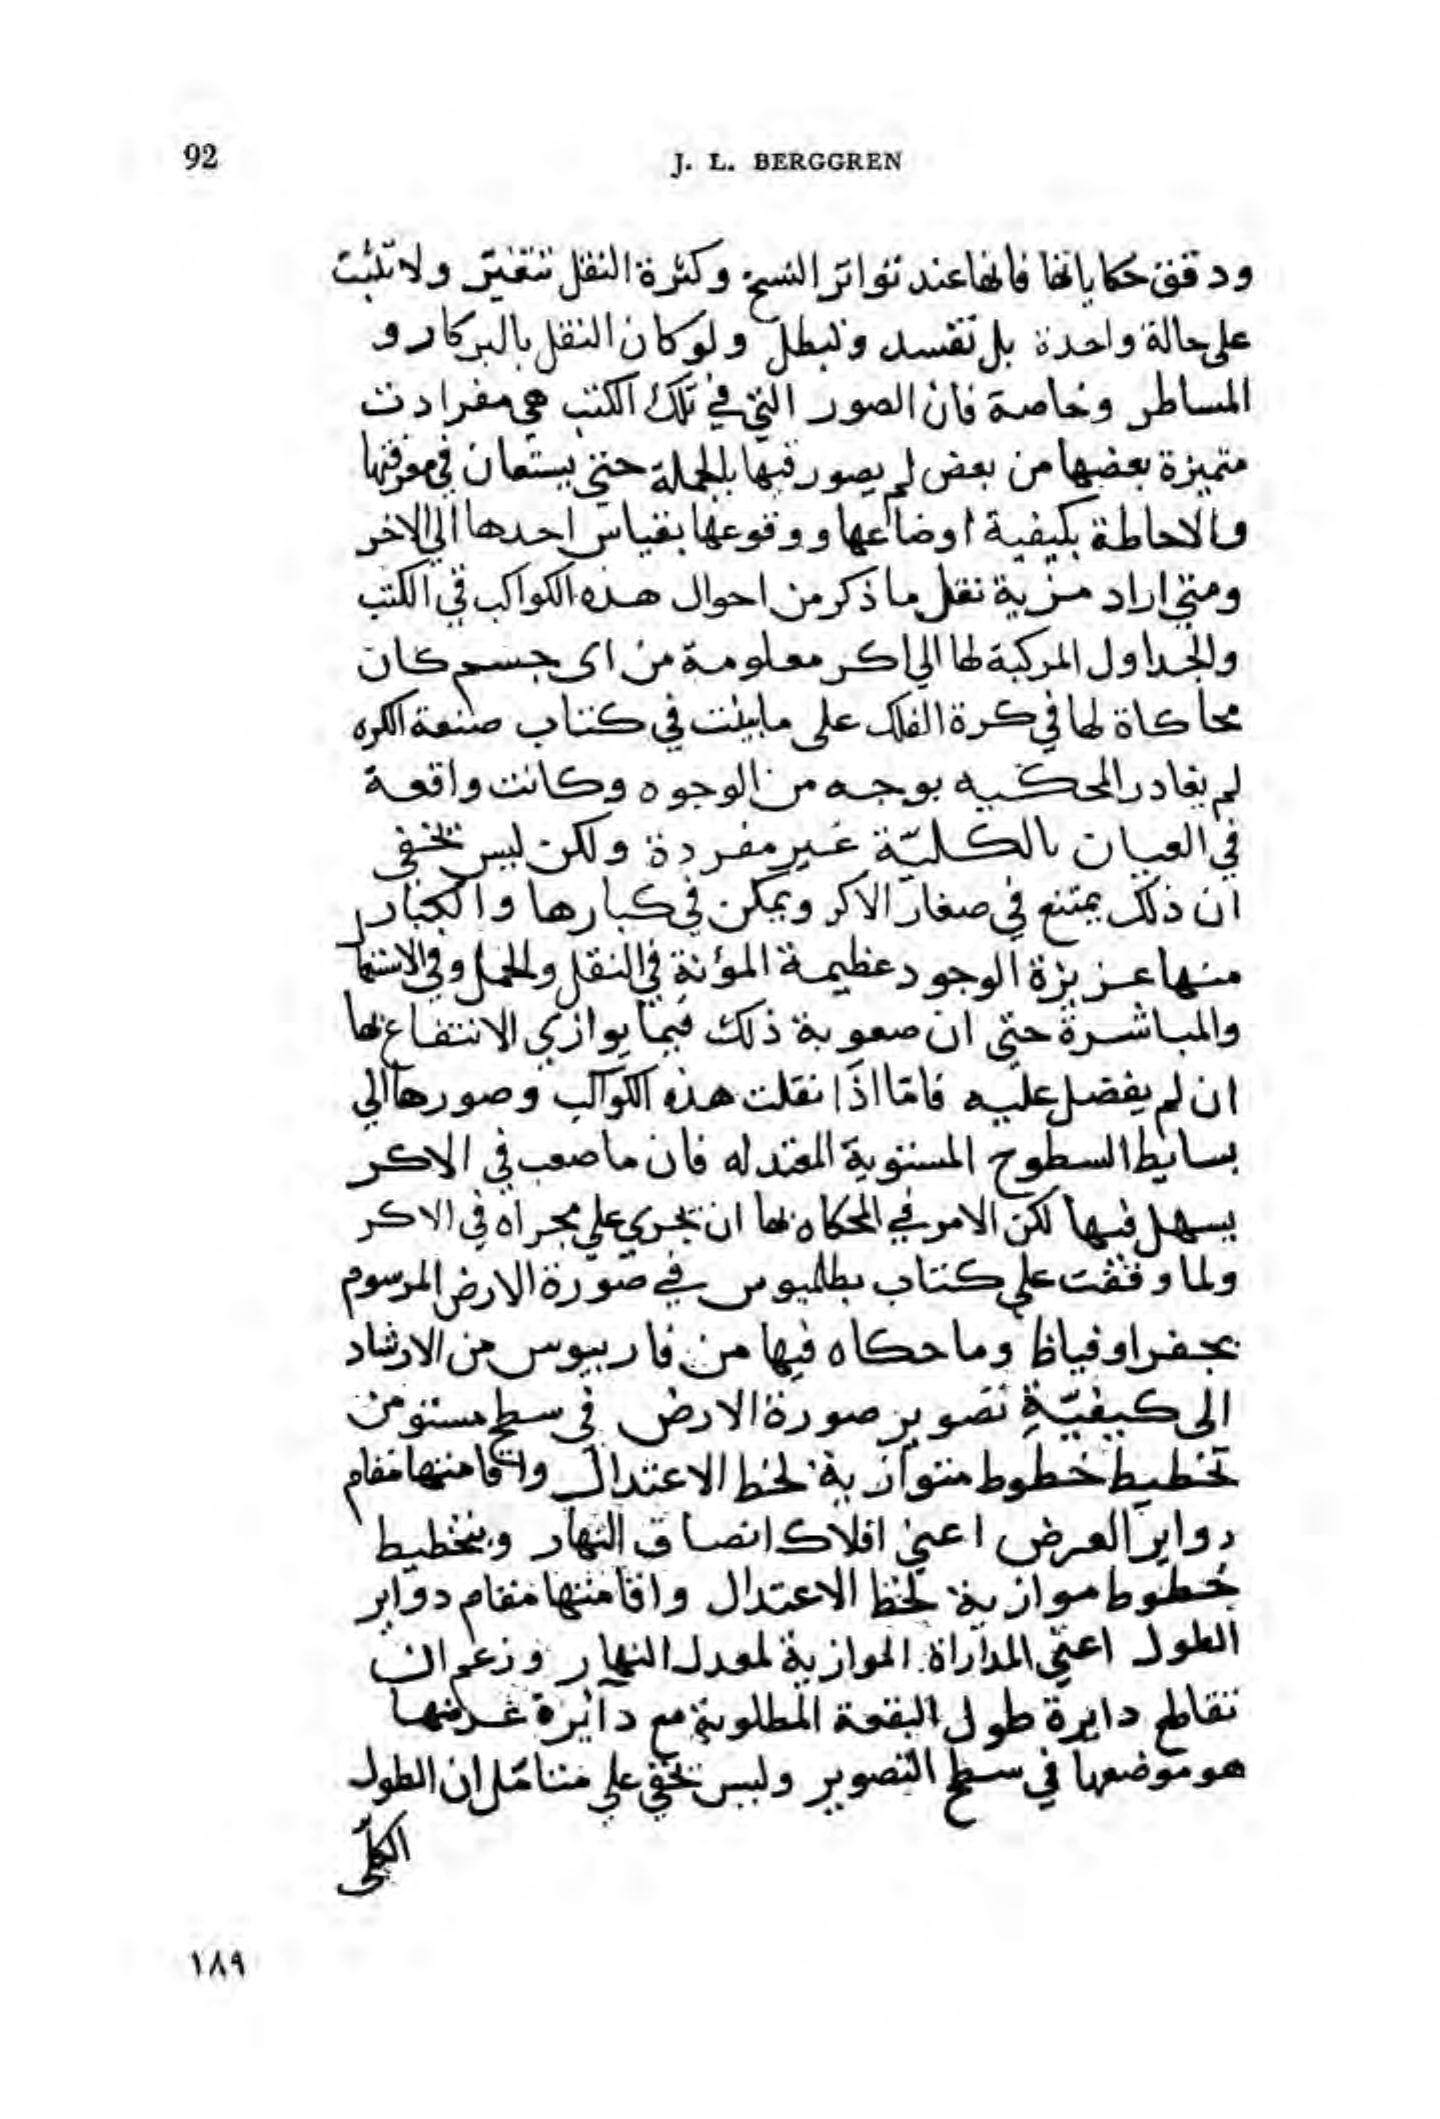 92
J. L. BERGGREN
ودقق حكاياتها فانها عند تواتر النسخ وكثرة النقل تتغير ولا تثبت
على حالة واحدة بل تفسد وتبطل ولو كان النقل بالبركار و
المساطر وخاصة فان الصور التي في تلك الكتب هي مفردات
متميزة بعضها من بعض لم يصور فيها بالجملة حتى يستعان في معرفتها
والاحاطة بكيفية اوضاعها ووقوعها بقياس احدها الى الاخر
ومتى اراد مزية نقل ما ذكر من احوال هذه الكواكب في الكتب
والجداول المركبة لها الى اكر معلومة من اى جسم كان
محاكاة لها في كرة الفلك على ما بينت في كتاب صنعة الكره
لم يغادر المحكيه بوجه من الوجوه وكانت واقعة
في العيان بالكليّة غير مفردة ولكن ليس تخفى
ان ذلك يمتنع في صغار الاكر ويمكن في كبارها والكبار
منها عزيزة الوجود عظيمة المؤنة في النقل والحمل وفي الاستما
والمباشرة حتى ان صعوبة ذلك فيما يوازي الانتفاع بها
ان لم يفضل عليه فامّا اذا نقلت هذه الكواكب وصورها الي
بسايط السطوح المستوية المعتدله فان ما صعب في الاكر
يسهل فيها لكن الامر في المحكاه بها ان تجري علي مجراه في الاكر
ولما وقفت علي كتاب بطلميوس في صورة الارض المرسوم
بجغراوفياظ وما حكاه فيها من فاريبوس من الارشاد
الى كيفيّة تصوير صورة الارض في سطح مستو من
تخطيط خطوط متوازية لخط الاعتدال واقامتها مقام
دواير العرض اعني افلاك انصاف النهار وبتخطيط
خطوط موازية لخط الاعتدال واقامتها مقام دواير
الطول اعني المداراة الموازية لمعدل النهار وزعم ان
تقاطع دايرة طول البقعة المطلوبة مع دآئرة عرضها
هو موضعها في سطح التصوير وليس تخفي علي متنامّل ان الطول
الكلّي
١٨٩